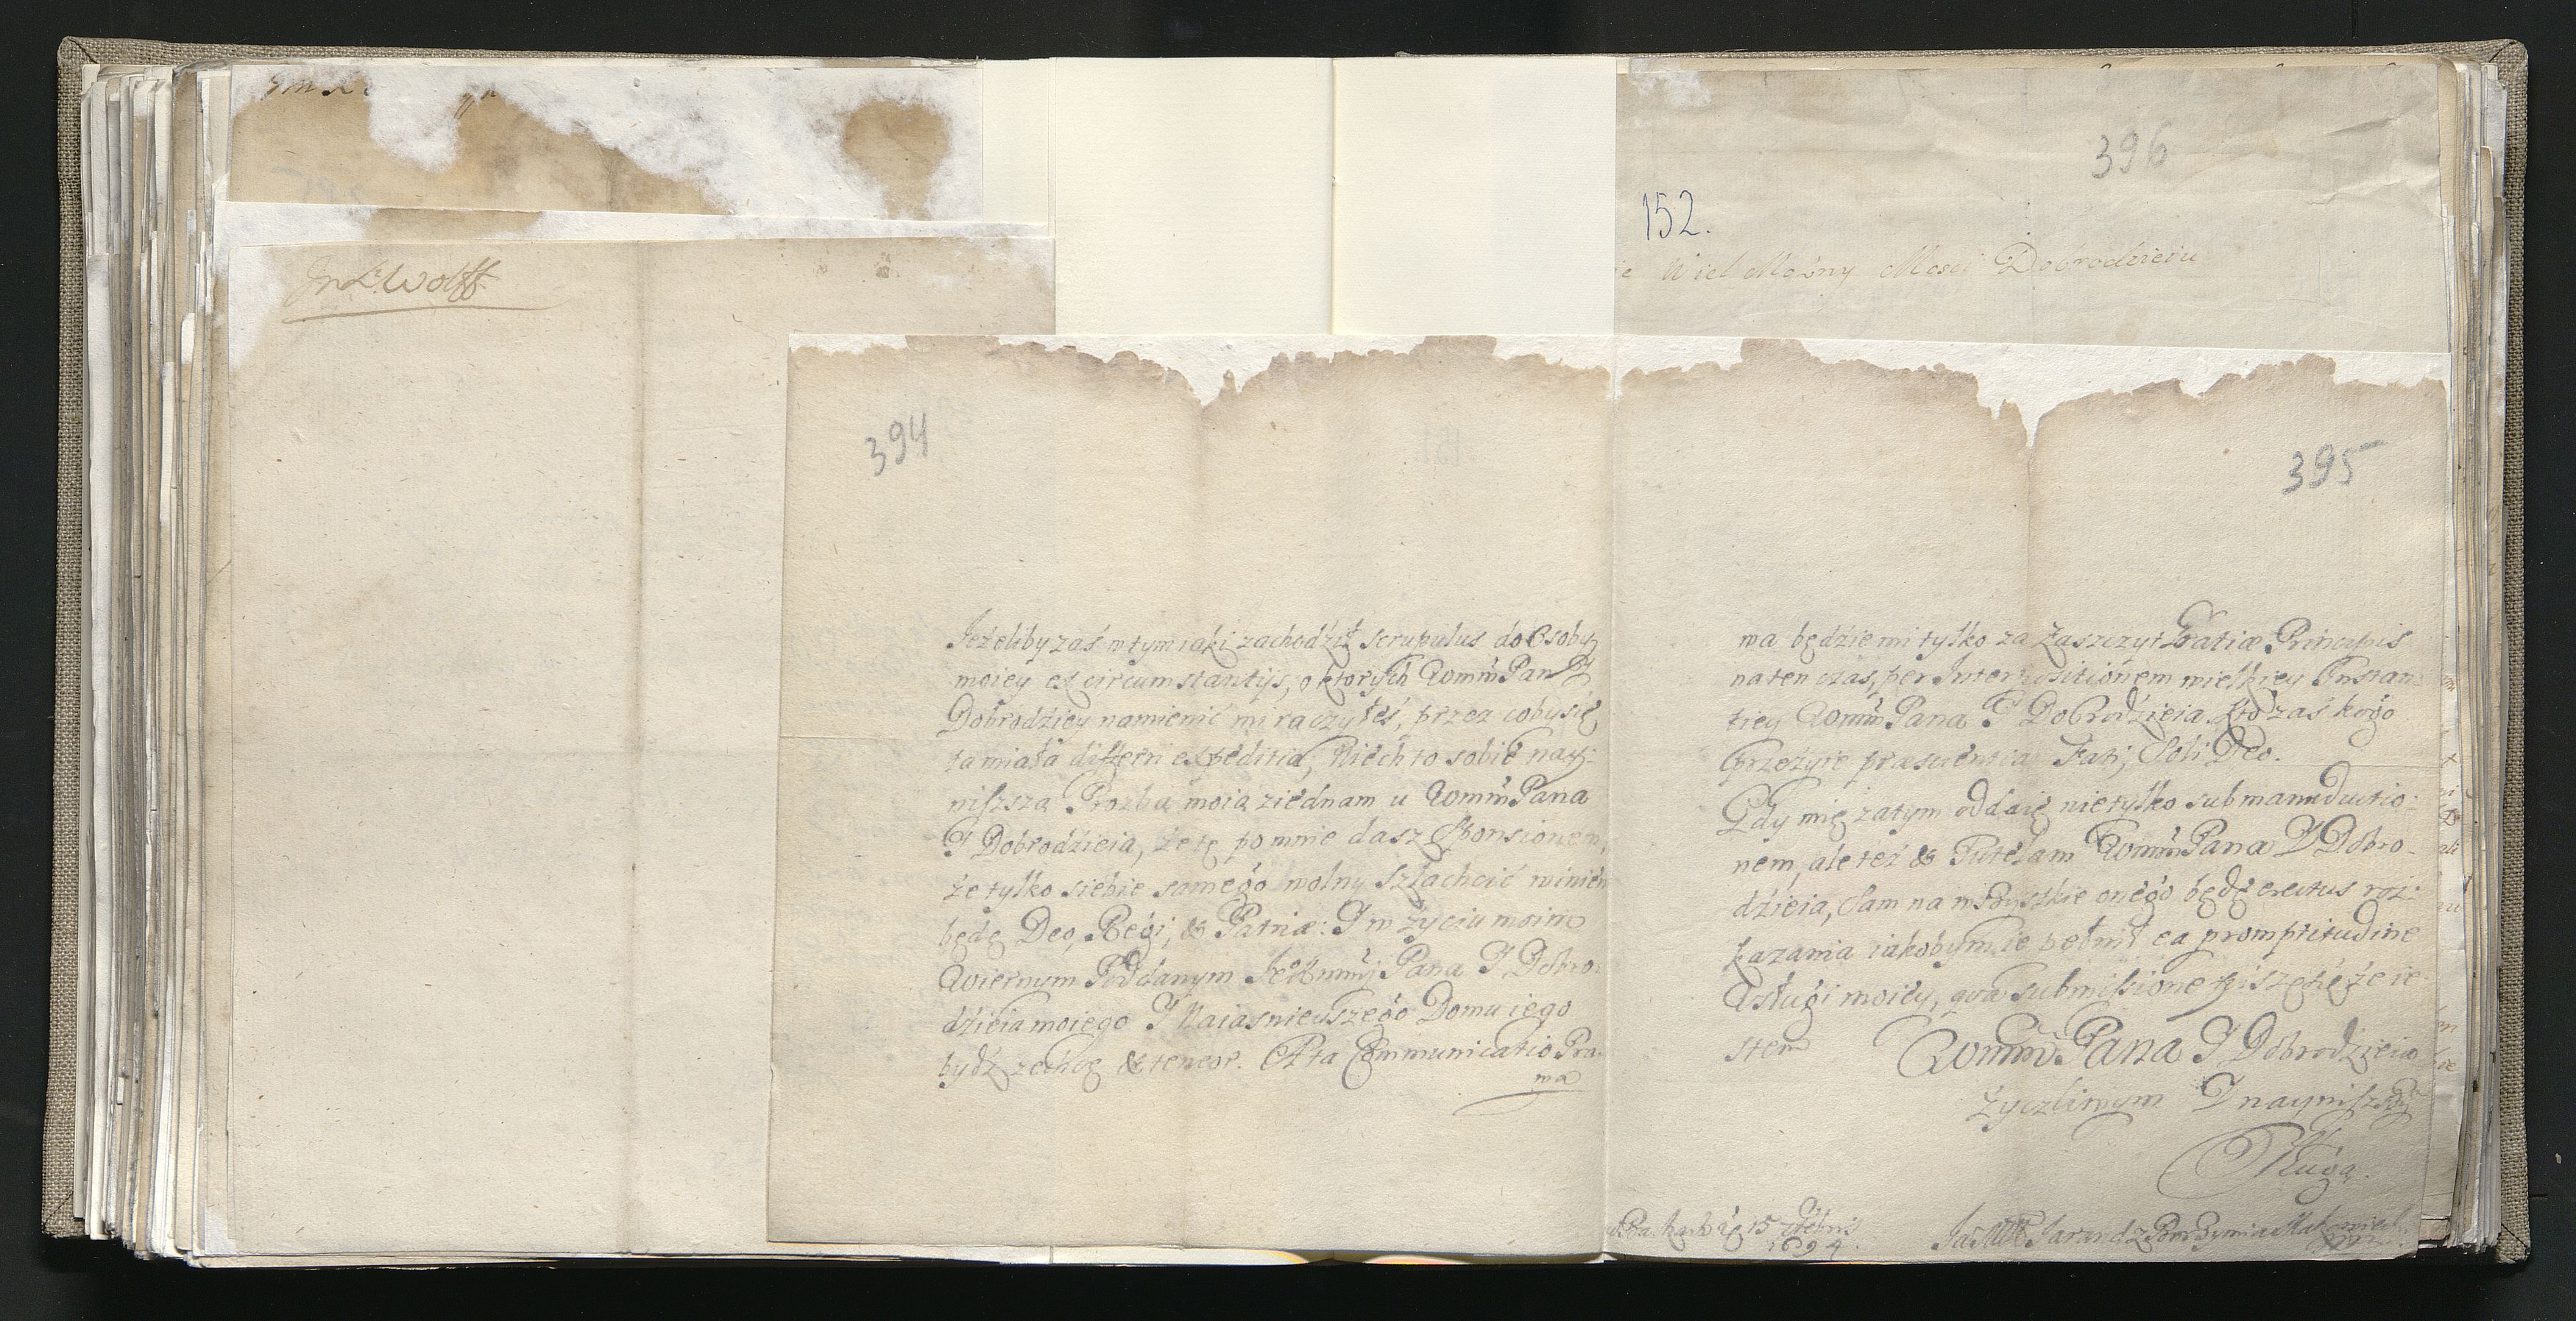 Jn L: Wolff
394
Jeżeliby zaś w tym iaki zachodził scrupulus do Osoby
moiey ex circumstantijs, o ktorych Pan I
Dobrodźiey namienić mi raczyłeś, przez co by się
ta miała differri expeditia, Niech to sobie nay-
niższa Prozba moia ziednam u Pana
I Dobrodźieia, że tę po mnie dasz Sponsionem,
że tylko siebie samego wolny szlachcić winien
będę Deo, Regi, & Patriæ: I w życiu moim
Wiernym Poddanym Pana I Dobro-
dźieia moiego I Naiasnieyszego Domu iego
bydź zechcę & teneor. A ta Communicatio Pra-
wa
396
152.
Wiel Możny Mosći Dobrodzieiu
395
wa będzie mi tylko za Zaszczyt Gratiæ Principis
na ten czas, per Interpositionem wielkiey Instan-
tiey Pana I Dobrodźieia. Kto zaś kogo
przeżyie præscientia Fati, Soli Deo.
Gdy mię zatym oddaię nie tylko sub manuductio-
nem, ale też & Tutelam Pana I Dobro-
dźieia, Sam na wszystkie onego będę erectus roz-
kazania iakobym ie pełnił ea promptitudine
Usługi moiey, qva submissione piszę się że ie-
stem
Pana I Dobrodźieia
Życzliwym I nayniższym
Sługą.
15
1694.